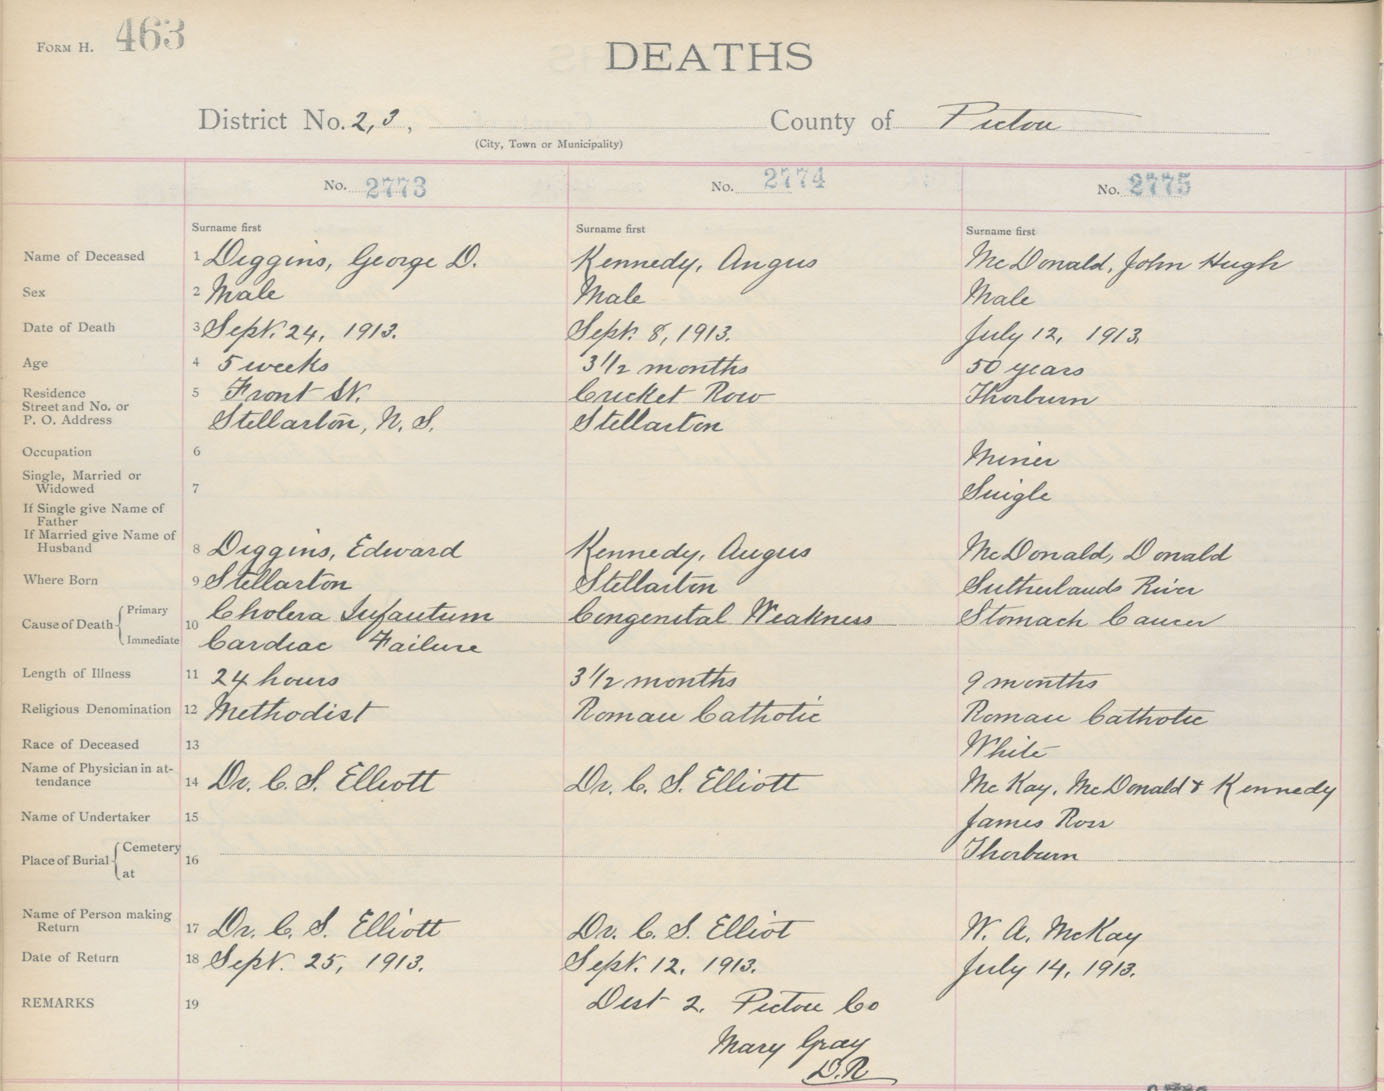 FORM H. 463
DEATHS
District No. 2, 3, County of Pictou
(City, Town or Municipality)
No. 2773 No. 2774 No. 2775
Surname first Surname first Surname first
Name of Deceased 1 Diggins, George D. Kennedy, Angus McDonald, John Hugh
Sex 2 Male Male Male
Date of Death 3 Sept. 24, 1913. Sept. 8, 1913. July 12, 1913.
Age 4 5 weeks 3 1/2 months 50 years
Residence 5 Front St. Cricket Row Thorburn
Street and No. or
P. O. Address Stellarton, N. S. Stellarton
Occupation 6 Miner
Single, Married or
Widowed 7 Single
If Single give Name of
Father
If Married give Name of
Husband 8 Diggins, Edward Kennedy, Angus McDonald, Donald
Where Born 9 Stellarton Stellarton Sutherlands River
Cause of Death Primary 10 Cholera Infantum Congenital Weakness Stomach Cancer
Immediate Cardiac Failure
Length of Illness 11 24 hours 3 1/2 months 9 months
Religious Denomination 12 Methodist Roman Catholic Roman Catholic
Race of Deceased 13 White
Name of Physician in at-
tendance 14 Dr. C. S. Elliott Dr. C. S. Elliott McKay, McDonald & Kennedy
Name of Undertaker 15 James Ross
Place of Burial Cemetery 16 Thorburn
at
Name of Person making
Return 17 Dr. C. S. Elliott Dr. C. S. Elliot W. A. McKay
Date of Return 18 Sept. 25, 1913. Sept. 12, 1913. July 14, 1913.
REMARKS 19 Dist 2. Pictou Co
Mary Gray
D.R